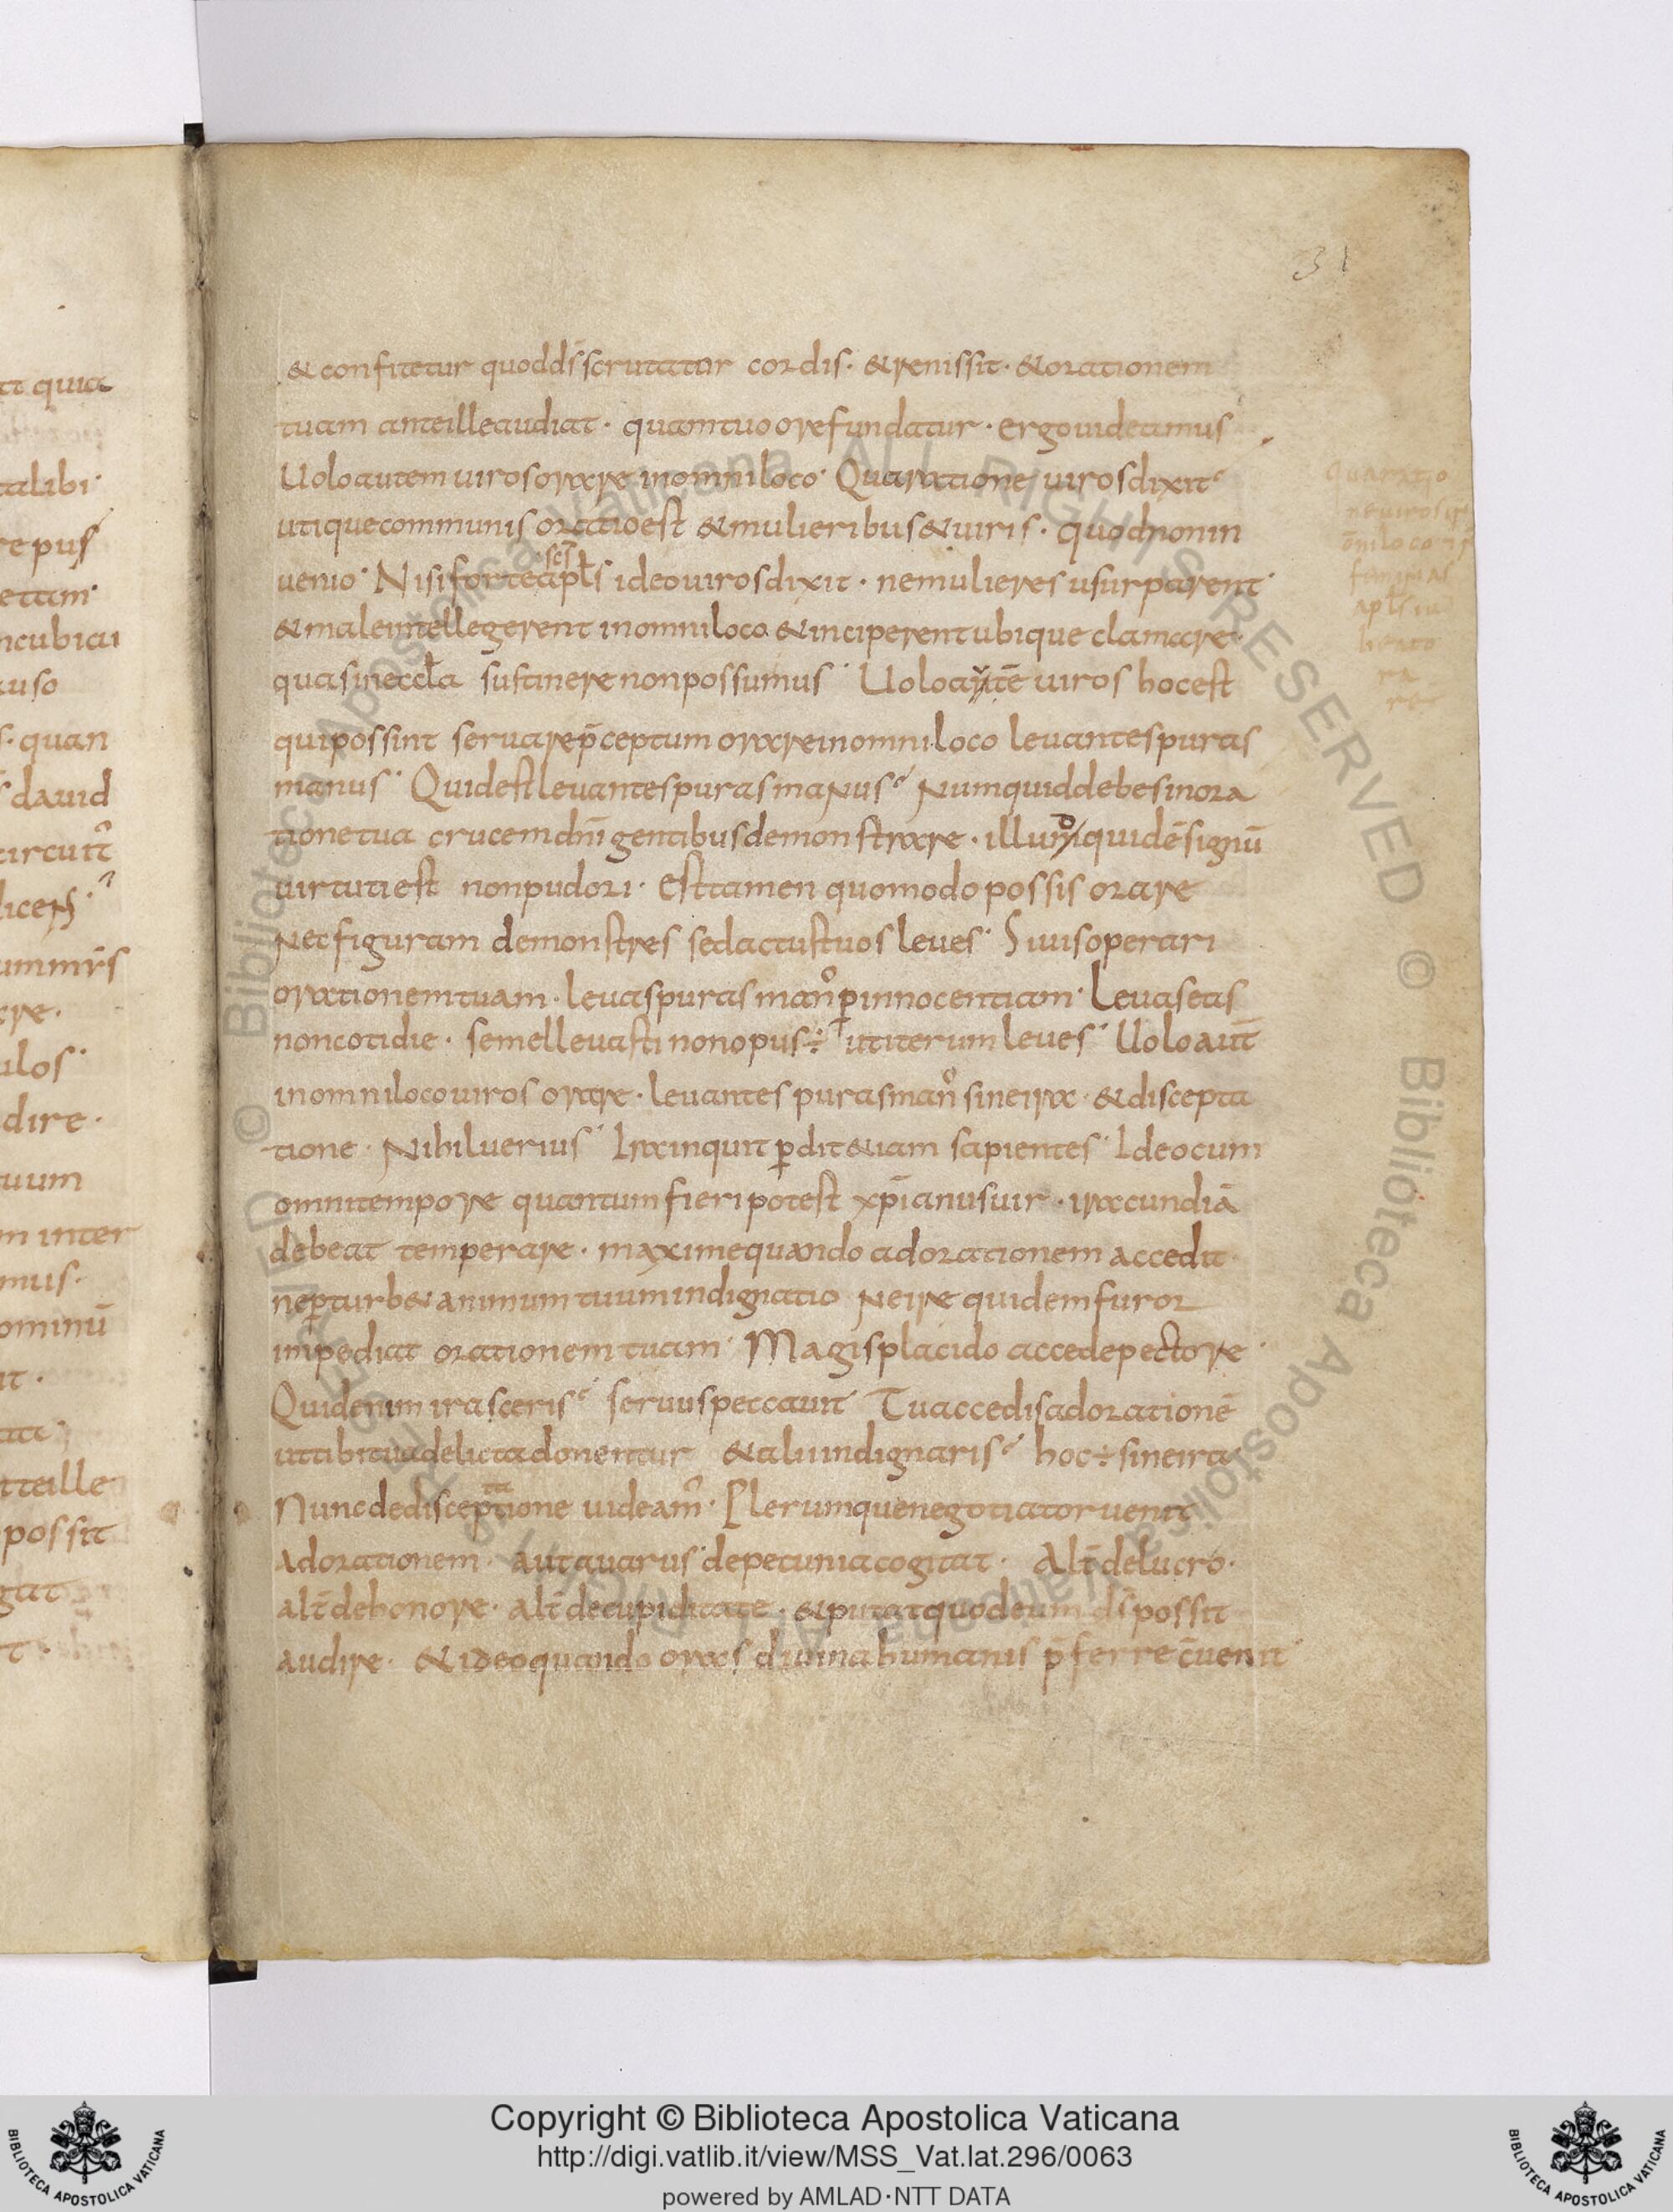 31
& confitetur quod d̄s scrutatur cordis · & renissit · & orationem
tuam ante ille audiat · quam tuo ore fundatur · ergo uideamus
Uolo autem uiros orare in omni loco · Qua ratione uiros dixit
utique communis oratio est & mulieribus & uiris · quod non in
uenio · Nisi forte sc̄s apl̄s ideo uiros dixit · ne mulieres usurparent
& male intellegerent in omni loco & inciperent ubique clamare ·
quas in eccl̄a sustinere non possumus · Uolo autē uiros hoc est
qui possint seruare p̄ceptum orare in omni loco leuantes puras
manus · Quid est leuantes puras manus Numquid debes in ora
tione tua crucem dn̄i gentibus demonstrare · illud quidē signū
uirtuti est non pudori · est tamen quomodo possis orare
nec figuram demonstres sed actus tuos leues · Si uis operari
orationem tuam · leuas puras man᾽ ꝑ innocentiam · Leuas eas
non cotidie · semel leuasti non opus ÷ ut iterum leues · Uolo aut̄
in omni loco uiros orare · leuantes puras man᾽ sine ira · & discepta
tione · Nihil uerius · Ira inquit ꝑdit &iam sapientes · Ideo cum
omni tempore quantum fieri potest xp̄ianus uir · iracundiā
debeat temperare · maxime quando ad orationem accedit ·
ne ꝑturb& animum tuum indignatio Ne ire quidem furor
impediat orationem tuam · Magis placido accede pectore ·
Quid enim irasceris seruus peccauit Tu accedis ad orationē
ut tibi tua delicta donentur & alii indignaris hoc ÷ sine ira
Nunc de disceptatione uideam᾽ · Plerumque negotiator uenit
ad orationem · aut auarus · de pecunia cogitat · Alt̄ de lucro ·
alt̄ de honore · alt̄ de cupiditate · & putat quod eum d̄s possit
audire · & ideo quando oras diuina humanis p̄ferre c̄uenit
qua ratio
ne uiros
apl̄s iu
ra
re
tt quia
talibi ·
re pus
etam ·
ncubicu
auso
s · quan
dauid
circuit᾽
dicens ·
ummis
are ·
ulos ·
dire ·
tuum
m inter
mus ·
ominū
it ·
t teille
possit
gat
t ·
© Biblioteca Apostolica Vaticana ALL RIGHTS RESERVED
© Biblioteca Apostolica Vaticana ALL RIGHTS RESERVED
Copyright © Biblioteca Apostolica Vaticana
http://digi.vatlib.it/view/MSS_Vat.lat.296/0063
powered by AMLAD·NTT DATA
BIBLIOTECA APOSTOLICA VATICANA
BIBLIOTECA APOSTOLICA VATICANA